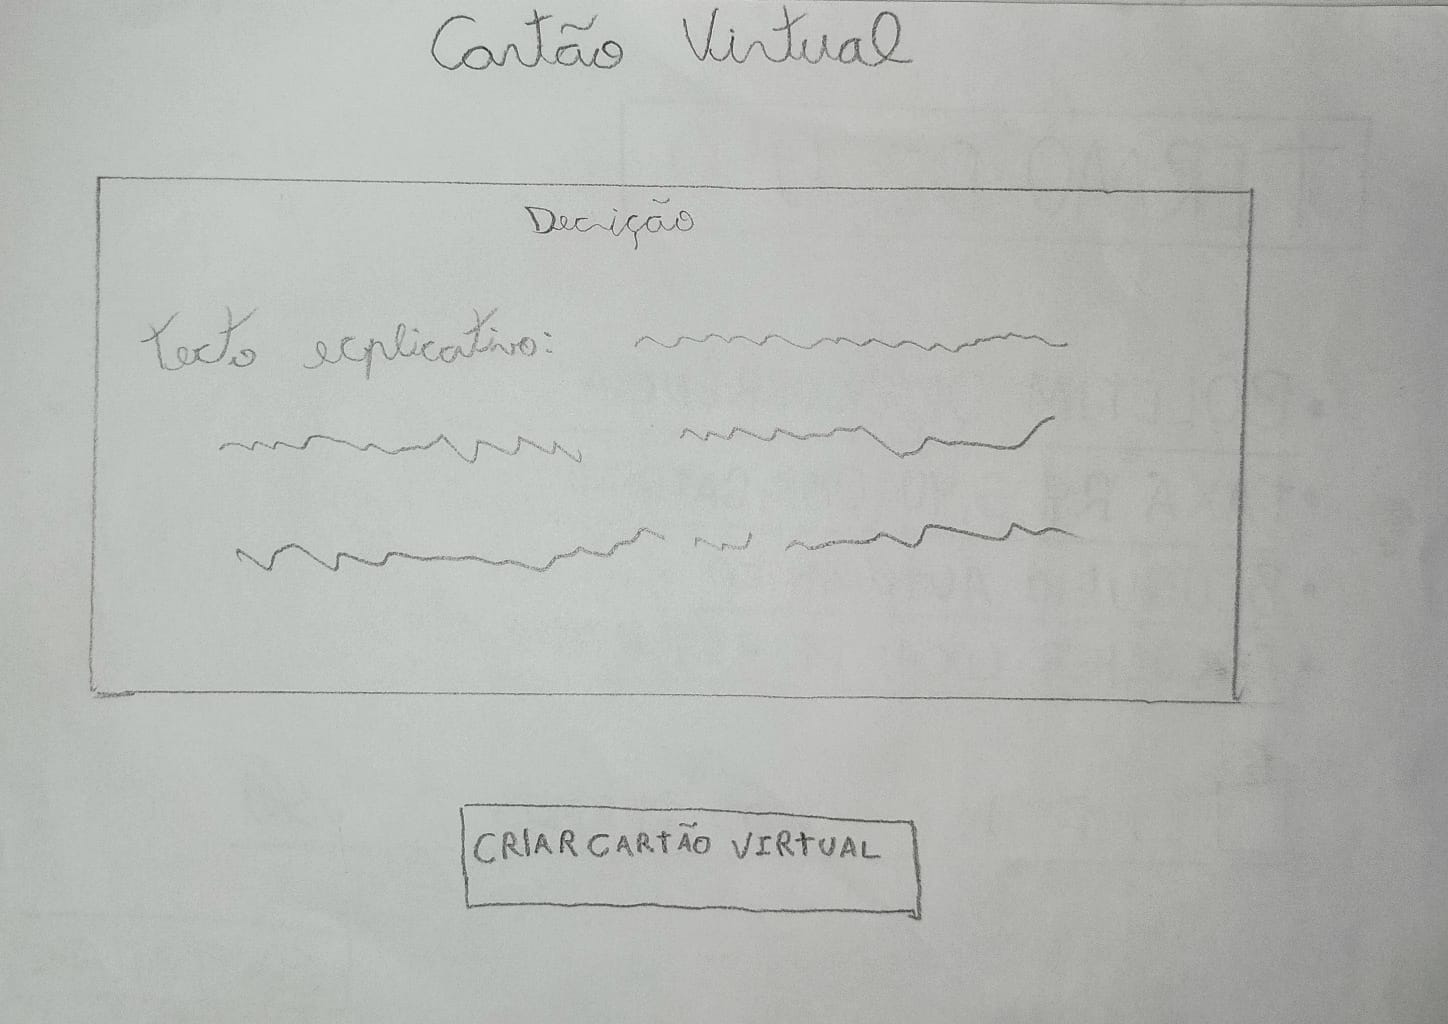 Cartão Virtual
Decição
Texto explicativo:
CRIAR CARTÃO VIRTUAL